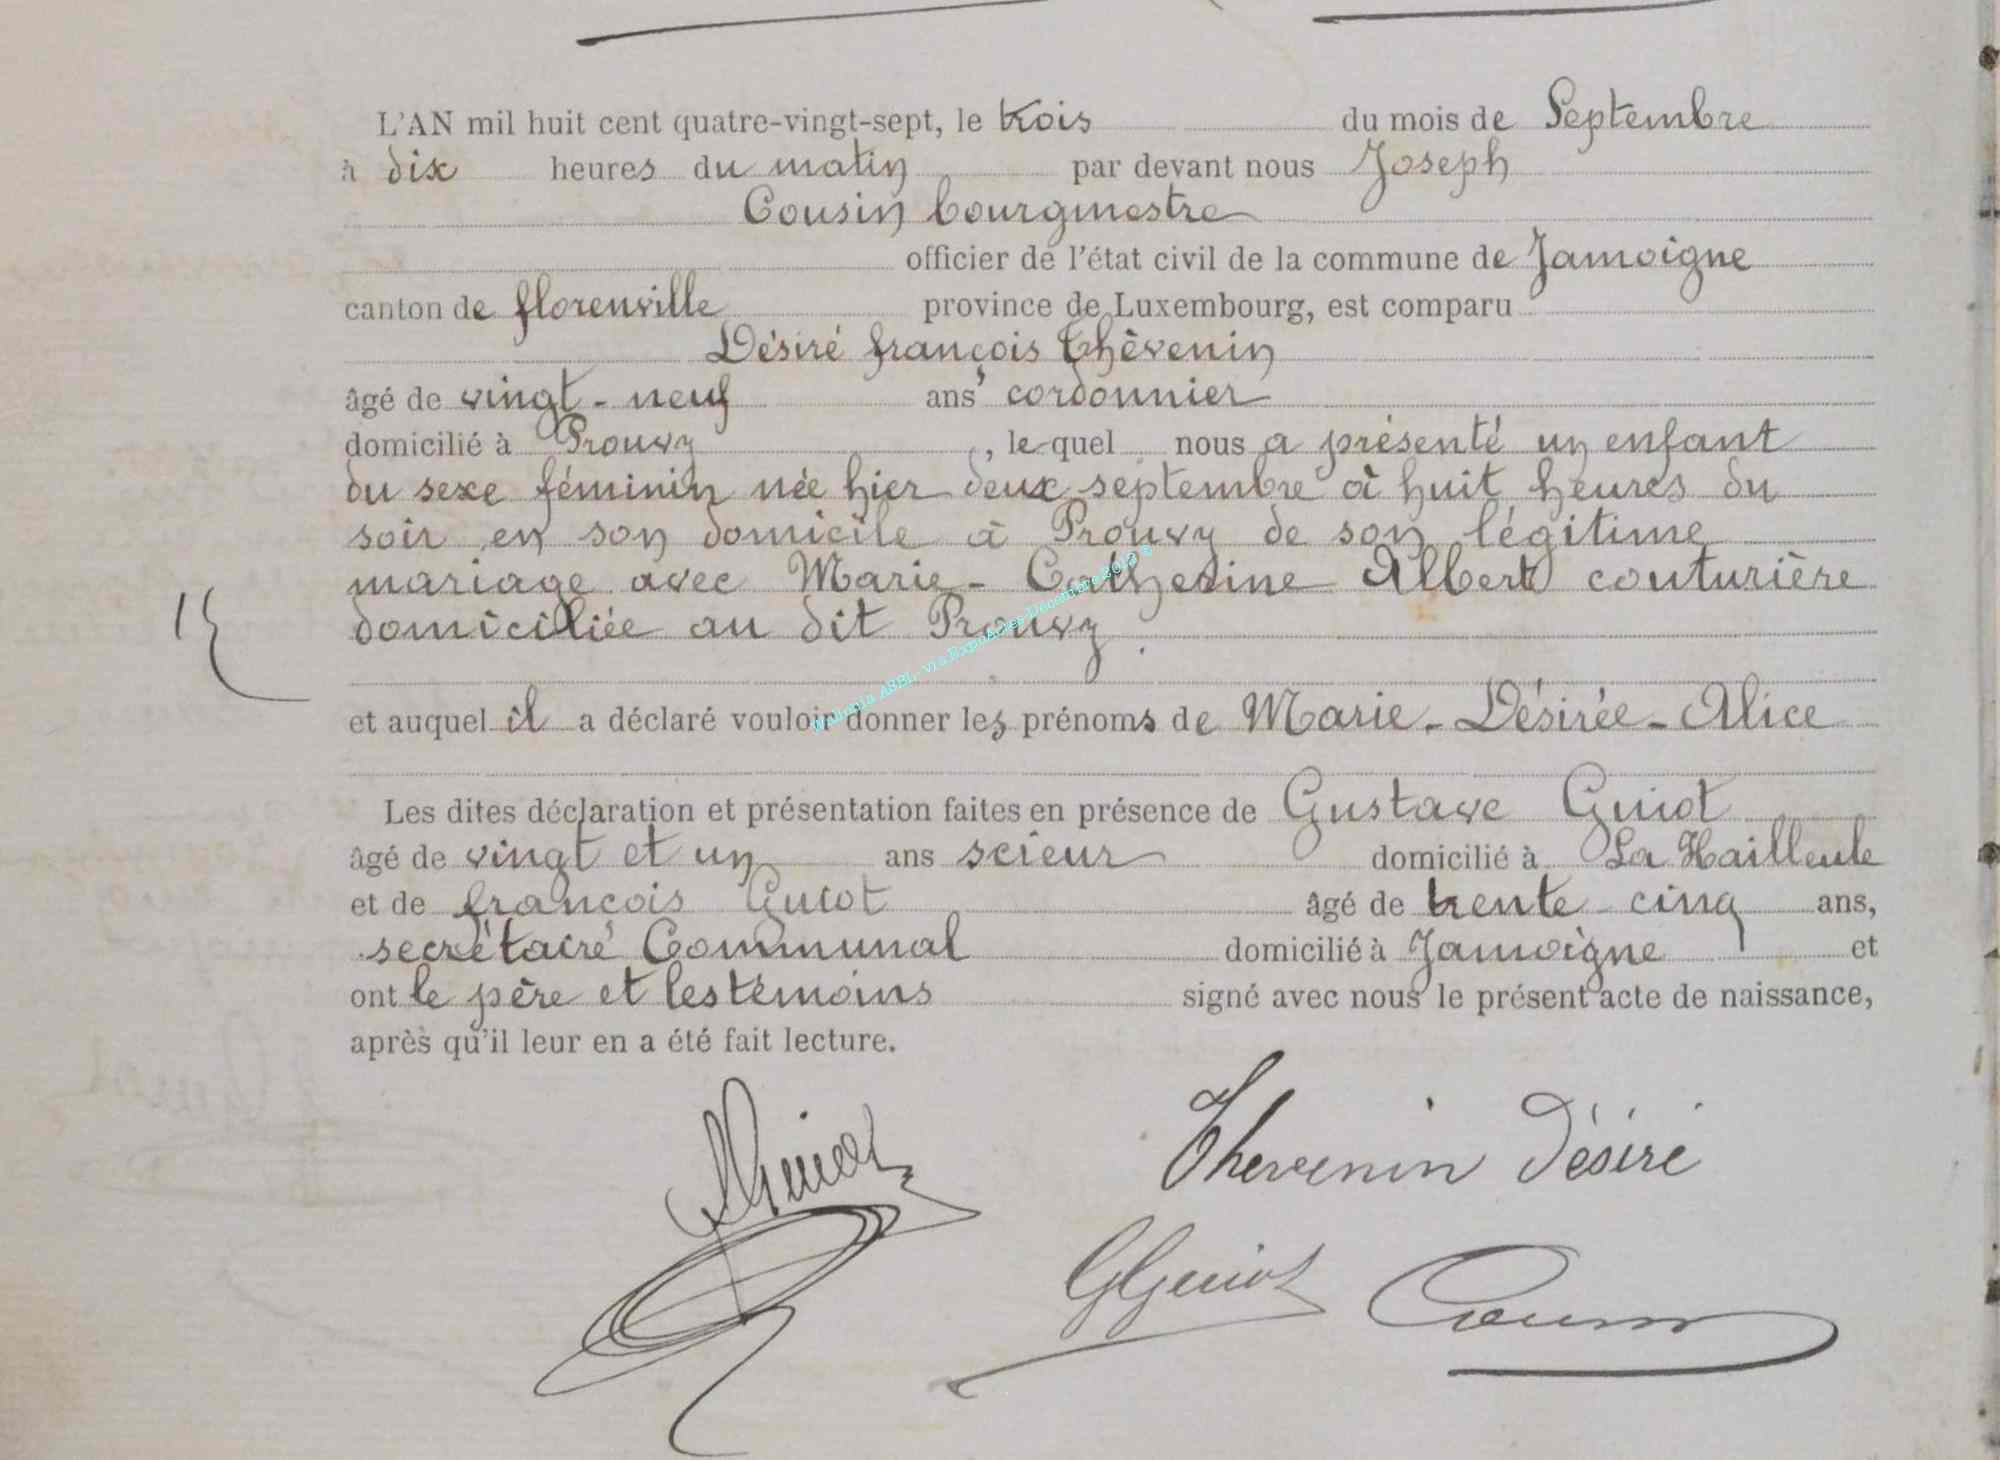 L'AN mil huit cent quatre-vingt-sept, le trois du mois de Septembre
à dix heures du matin par devant nous Joseph
Cousin bourgmestre
officier de l'état civil de la commune de Jamoigne
canton de florenville province de Luxembourg, est comparu
Désiré françois Thèvenin
âgé de vingt-neuf ans, cordonnier
domicilié à Prouvy, lequel nous a présenté un enfant
du sexe féminin née hier deux septembre à huit heures du
soir en son domicile à Prouvy de son légitime
mariage avec Marie-Catherine Albert couturière
domiciliée au dit Prouvy.
et auquel il a déclaré vouloir donner les prénoms de Marie-Désirée-Alice
Les dites déclaration et présentation faites en présence de Gustave Guiot
âgé de vingt et un ans scieur domicilié à La Hailleule
et de françois Guiot âgé de trente-cinq ans,
secrétaire Communal domicilié à Jamoigne et
ont le père et les témoins signé avec nous le présent acte de naissance,
après qu'il leur en a été fait lecture.
Guiot Thevenin Désiré
GGuiot Cousin
via ExpoActes Décembre